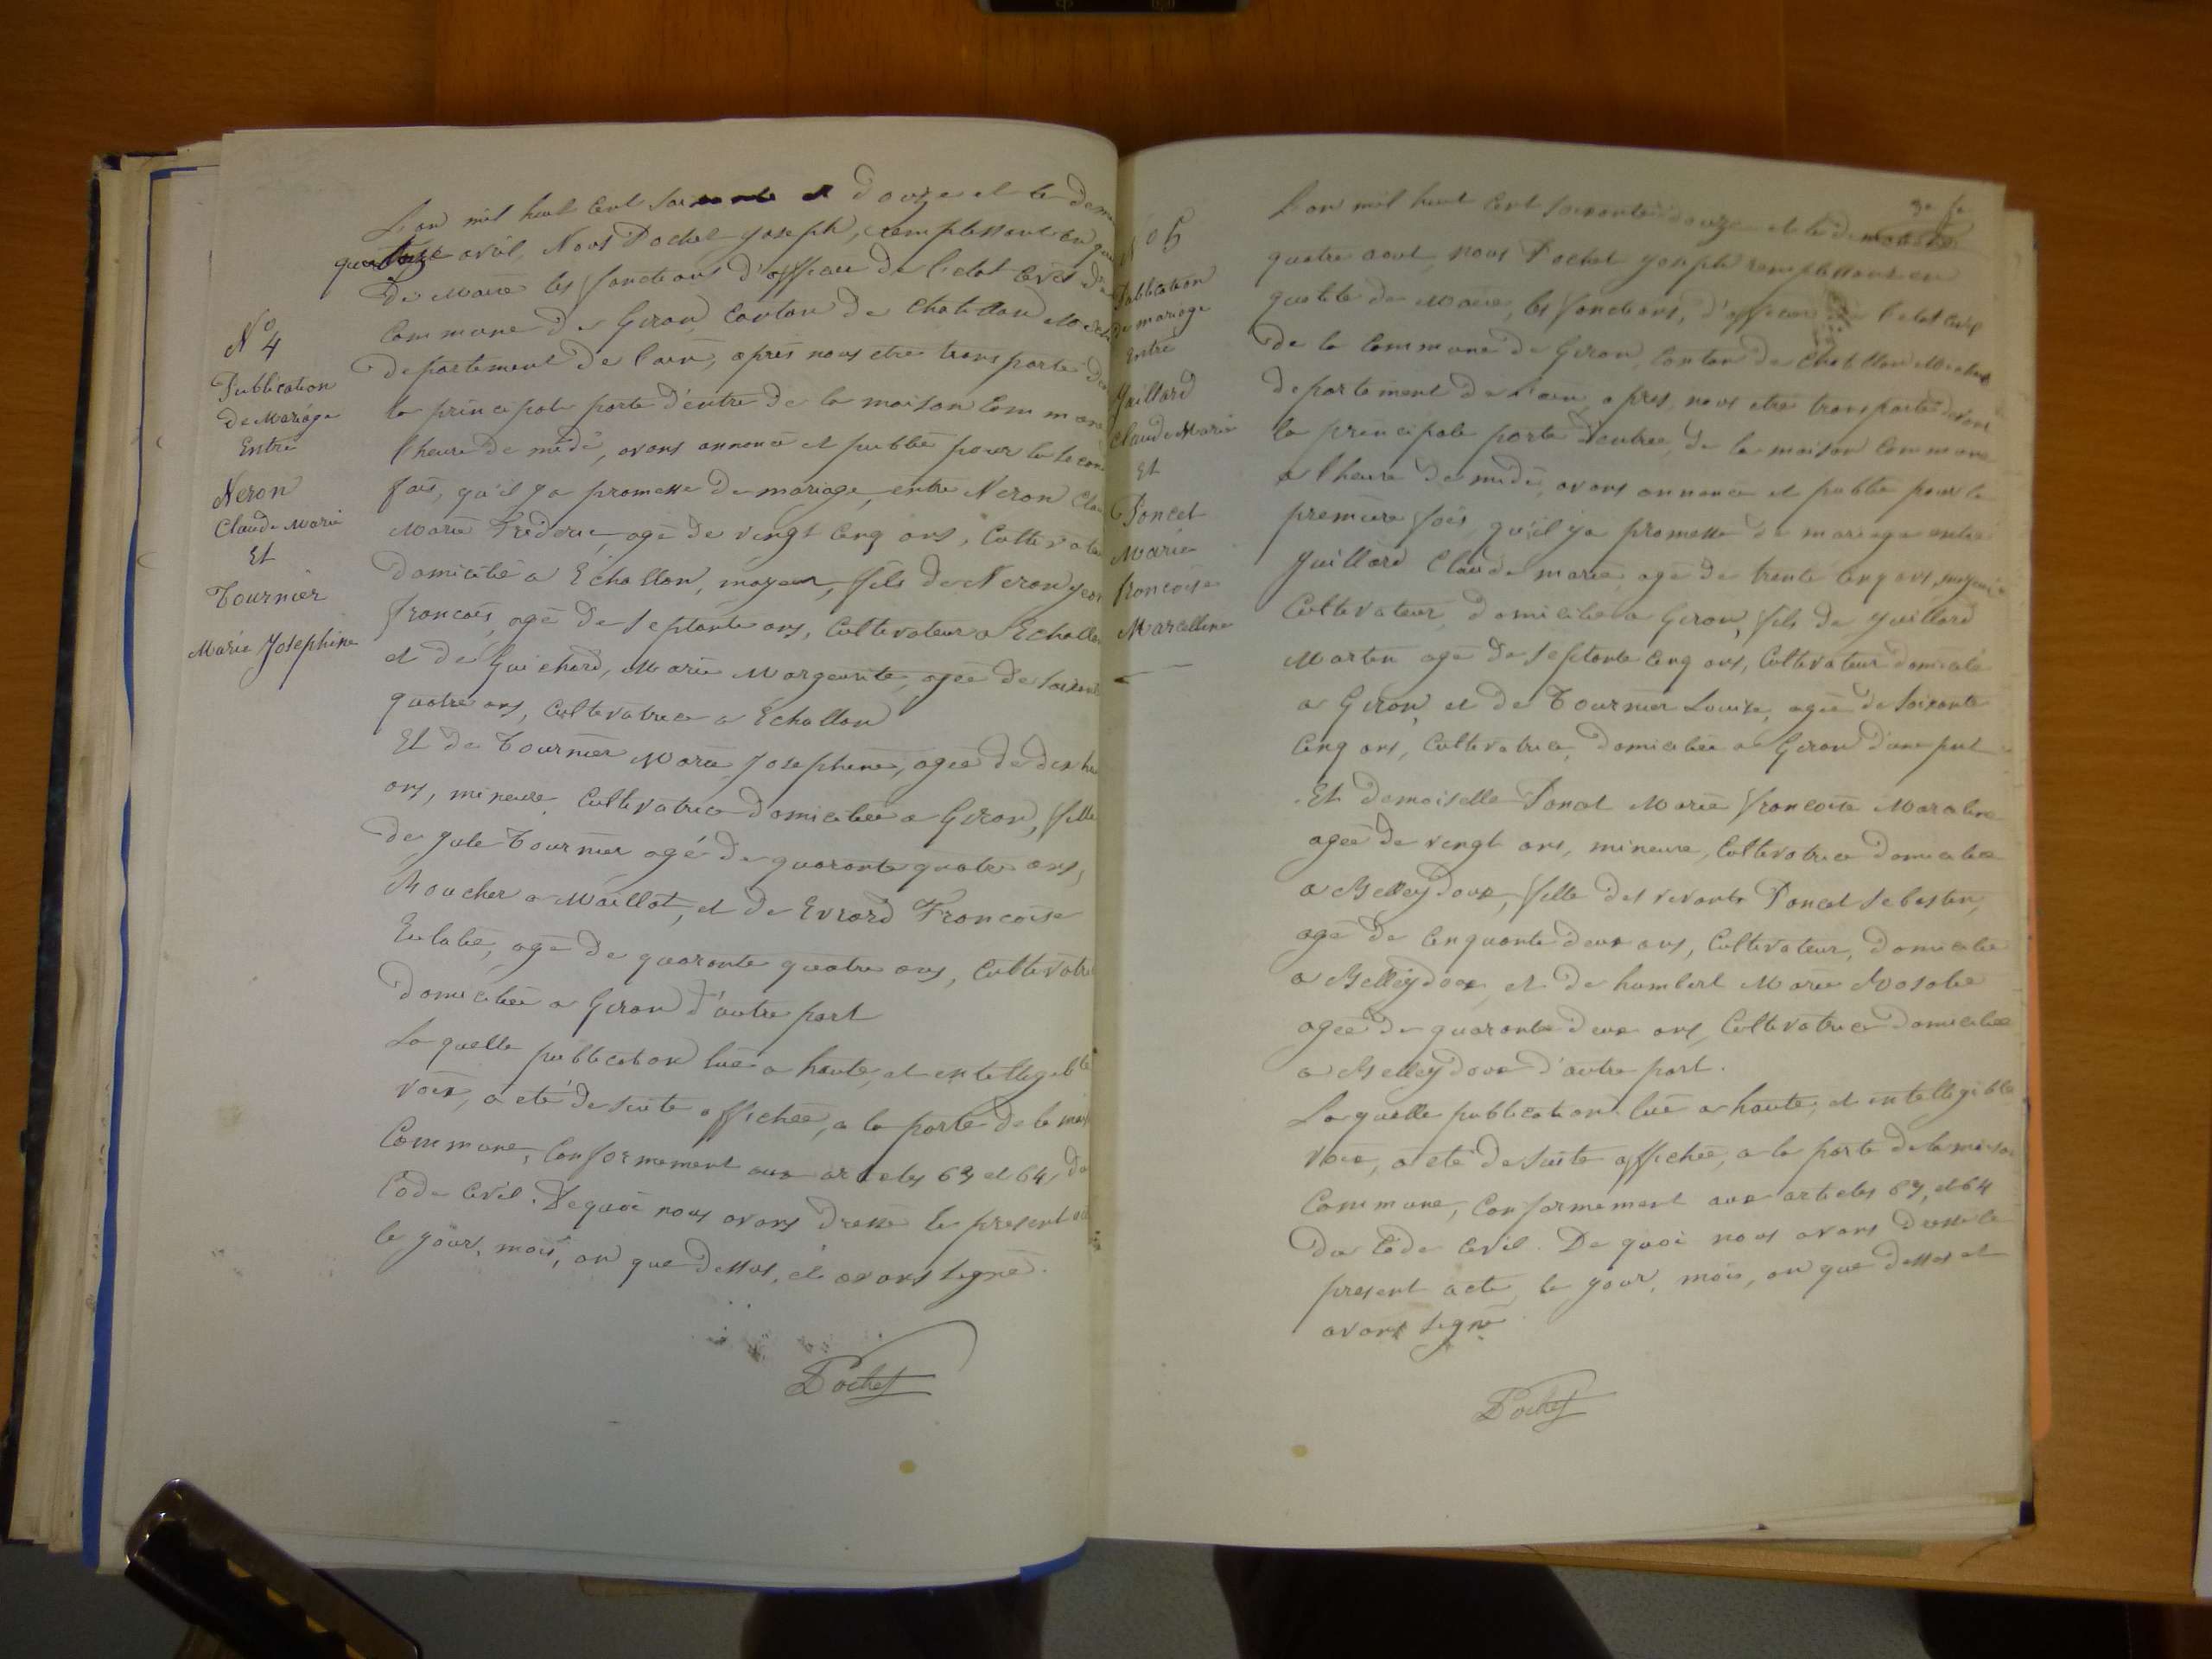 N° 4
Publication
De Mariage
Entre
Neron
Claude Marie
Et
Tournier
Marie Josephine
L'an mil huit cent soixante et douze et le dim
quatorze avril, Nous Pochet Joseph, remplissant en qua
De Maire les fonctions d'officier de l'etat civil de
Commune de Giron, Canton de Chatillon Mich
departement de l'ain, apres nous etre transporte de
la principale porte d'entre de la maison Commune
l'heure de midi, avons annoncé et publié pour la secon
fois, qu'il y a promesse de mariage, entre Neron Clau
Marie Frederic, agé de vingt cinq ans, Cultivate
domicilié a Echallon, mayeur, fils de Neron Jean
francois, agé de septante ans, Cultivateur a Echallon
et de Guichard, Marie Marguerite, agée de soixante
quatre ans, Cultivatrice a Echallon
Et de Tournier Marie Josephine, agée de dix hu
ans, mineure, Cultivatrice domiciliée a Giron, fille
de Jule Tournier agé de quarante quatre ans,
Boucher a Maillat, et de Evrard Francoise
Eulalie, agé de quarante quatre ans, Cultivatri
domiciliée a Giron d'autre part
La quelle publication lue a haute, et intelligible
voix, a eté de suite affichée, a la porte de la mais
Commune, Conformement aux articles 63 et 64, du
Code Civil. De quoi nous avons dressé le present ac
le jour, mois, an que dessus, et avons signé.
Pochet
N° 5
Publication
De mariage
Entre
Juillard
Claude Marie
Et
Poncet
Marie
francoise
Marcelline
L'an mil huit cent soixante douze et le dimanche
quatre aout, nous Pochet Joseph remplissant en
qualité de Maire, les fonctions, d'officier de l'etat civil
de la Commune de Giron, Canton de Chatillon Michail
departement de l'ain, apres, nous etre transporté devant
la principale porte d'entree, de la maison Commune
a l'heure de midi, avons annoncé et publié pour la
premiere fois, qu'il y a promesse de mariage entre
Juillard Claude marie, agé de trente cinq ans, mayeur
Cultivateur, domicilié a Giron, fils de Juillard
Martin agé de septante cinq ans, Cultivateur domicilé
a Giron, et de Tournier Louise, agée de soixante
cinq ans, Cultivatrice, domiciliée a Giron d'une part
Et demoiselle Poncet Marie francoise Marceline
agée de vingt ans, mineure, Cultivatrice domiciliée
a Belleydoux, fille des vivants Poncet Sebastien,
agé de cinquante deux ans, Cultivateur, domicilié
a Belleydoux, et de humbert Marie Rosalie
agée de quarante deux ans, Cultivatrice domiciliée
a Belleydoux d'autre part.
La quelle publication lue a haute, et intelligible
voix, a eté de suite affichée, a la porte de la maison
Commune, Conformement aux articles 63, et 64
du Code Civil. De quoi nous avons dressé le
present acte, le jour, mois, an que dessus et
avons signé
Pochet